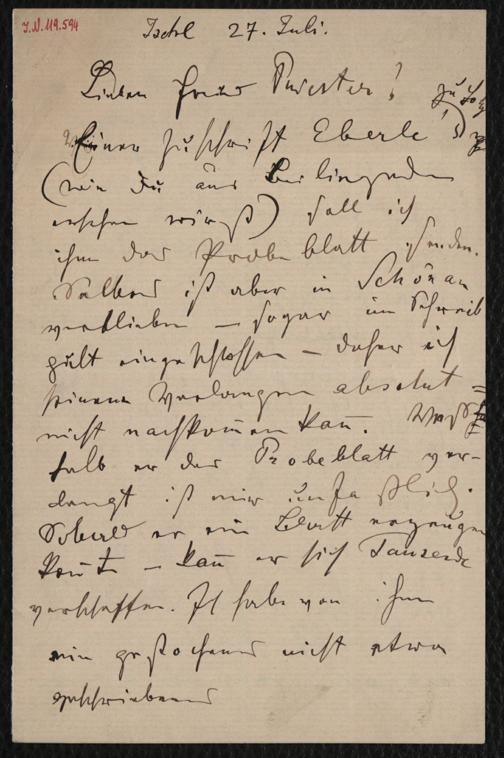 I.N. 119.594
Ischl 27. Juli.
Lieber Freund Puchstein!
Einer Zuschrift Eberle's zu Folge
(wie Du aus Beiliegendem
ersehen wirst) soll ich
ihm das Probeblatt senden.
Selbes ist aber in Schönau
verblieben – sogar im Schreib
pult eingeschlossen – daher ich
seinem Verlangen absolut
nicht nachkom̅en kan̅. Weß
halb er das Probeblatt ver-
langt ist mir unfaßlich.
Sobald er ein Blatt erzeugen
kon̅te – kan̅ er sich Tausende
verschaffen. Ich habe von ihm
ein gestochenes nicht etwa
geschriebenes